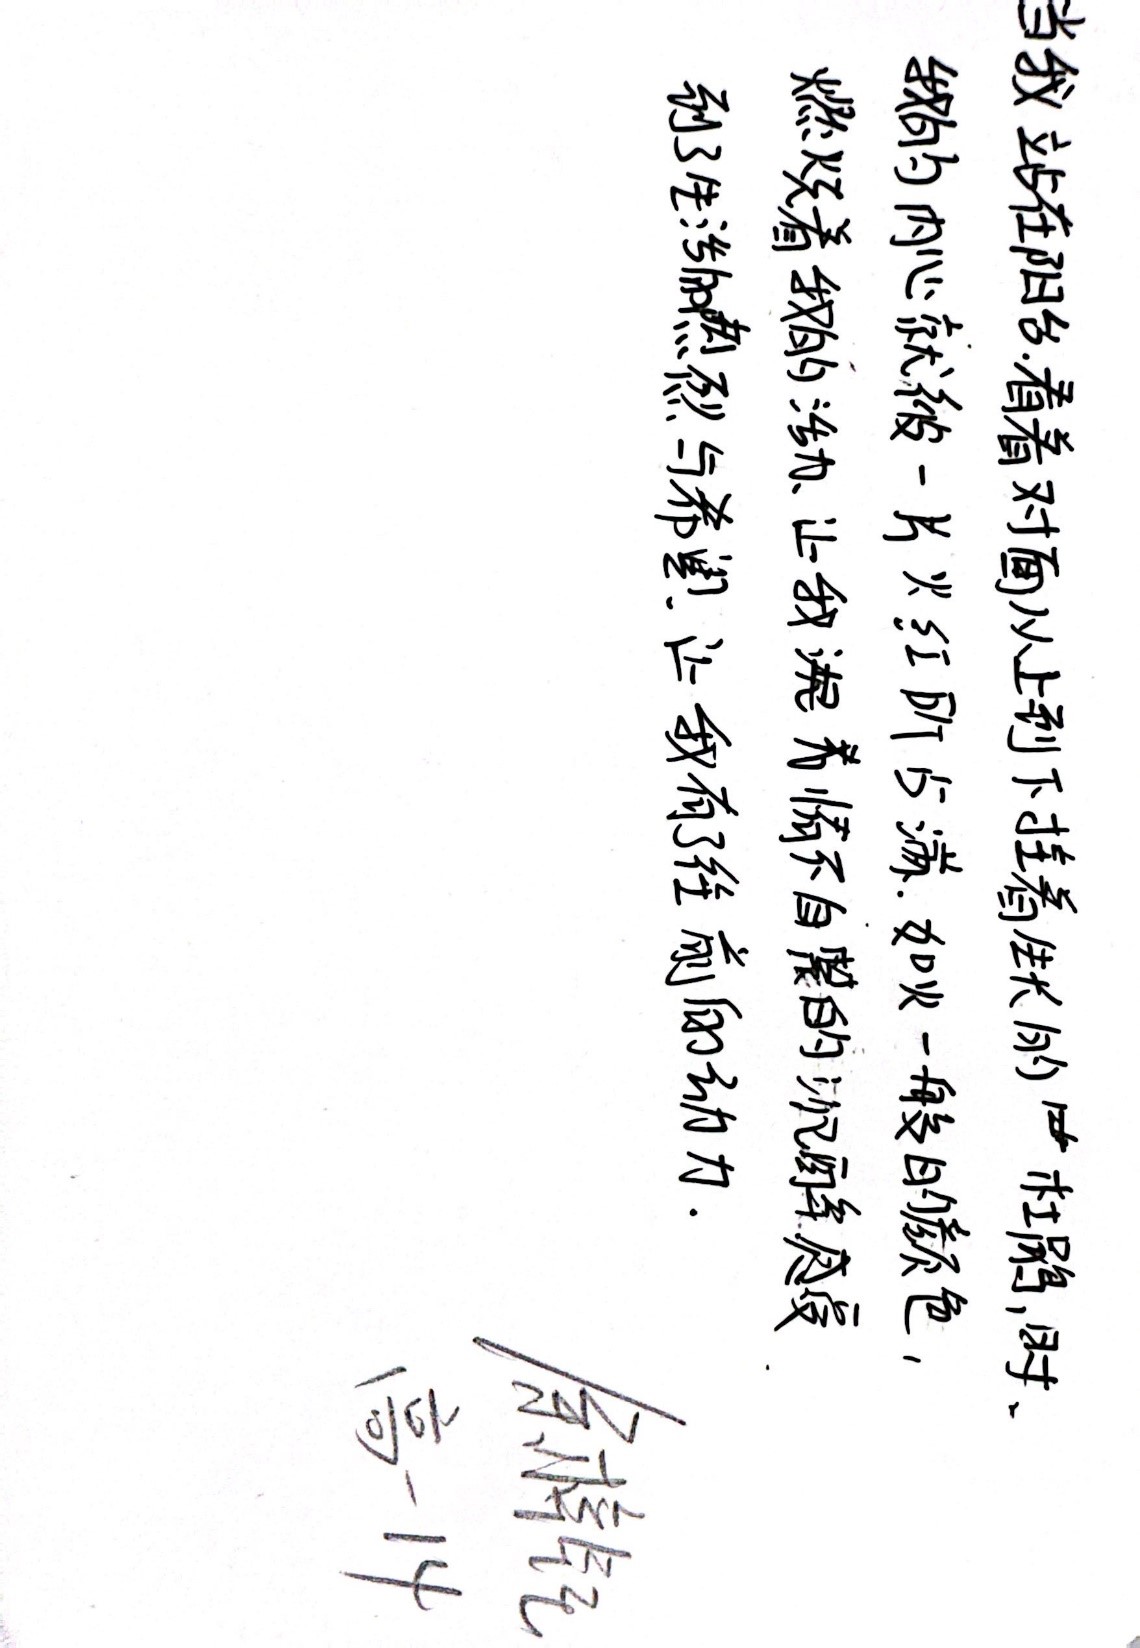 当我站在阳台.看着对面从上到下挂着生长的杜鹃,时、
我的内心就被一片火红所占满.如火一般的颜色,
燃烧着我的活力、让我情不自禁的沉醉.感受
到了生活的热烈与希望.让我有了往前的动力.
高一14